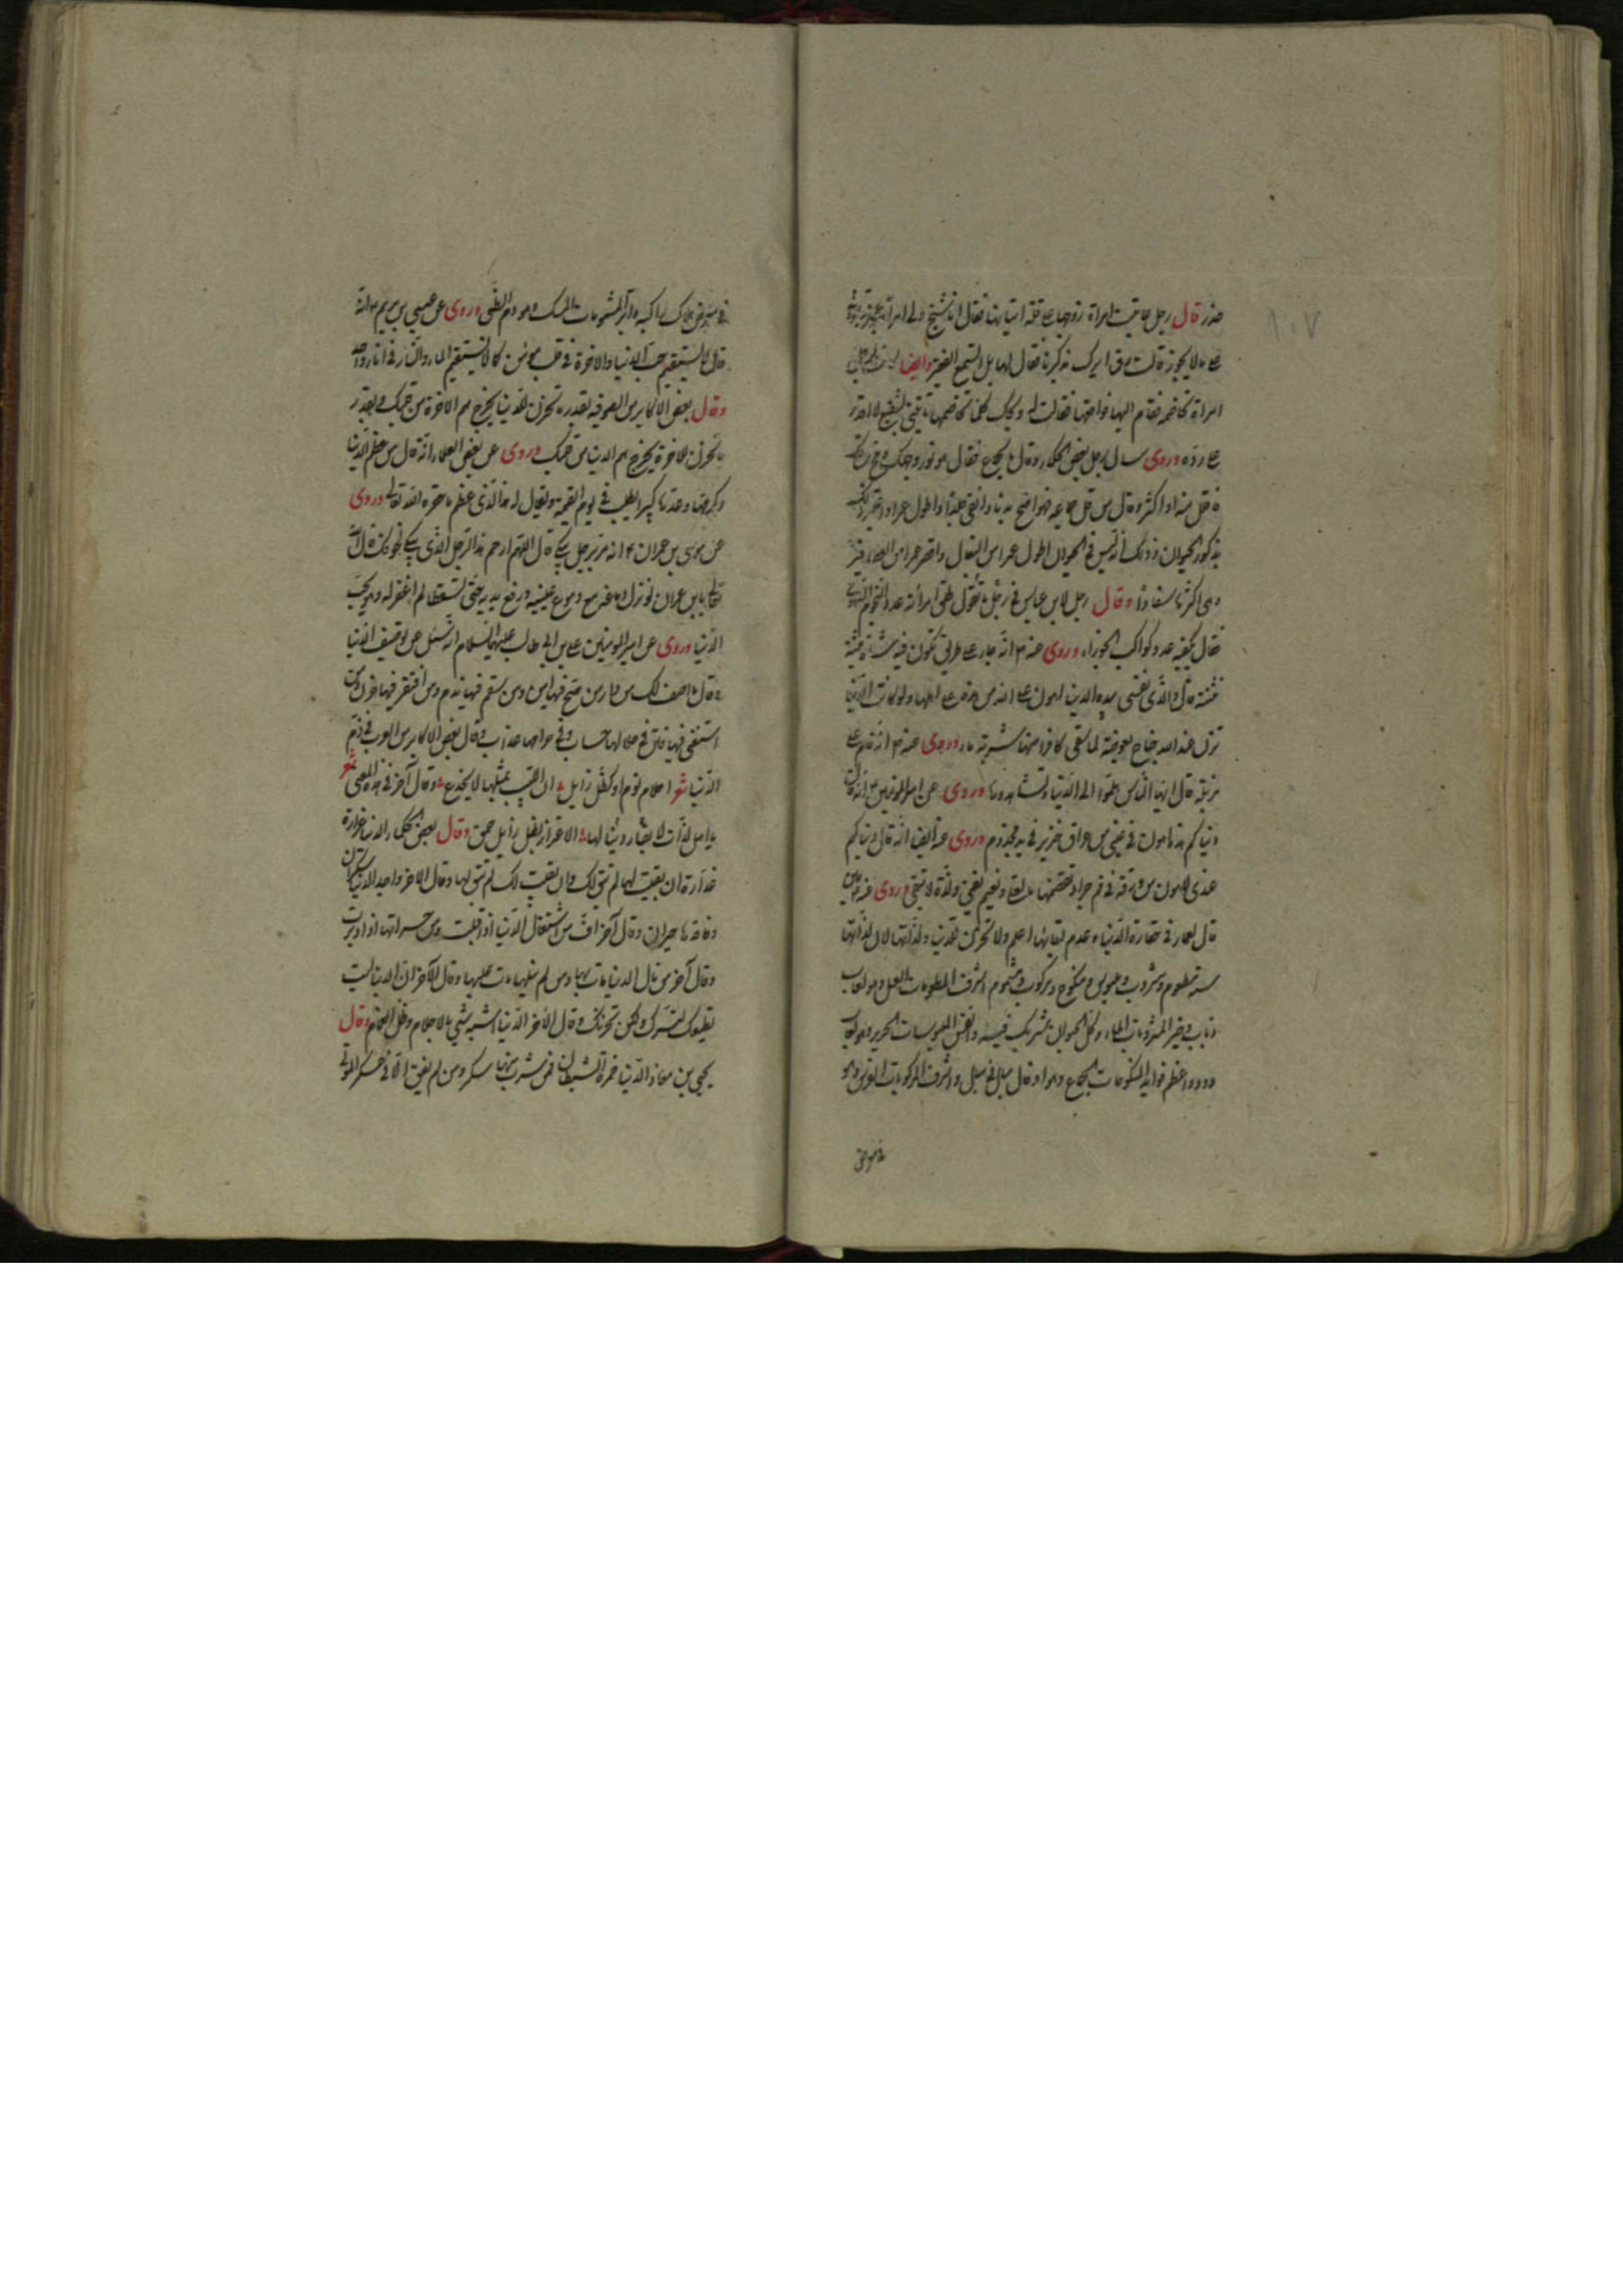 ١٠٧
قال رجل عاتبت امراة زوجها على قلة اتيانها فقال انا شيخ ولى امراة عجوز
ما لا يجوز قالت فقال لها بل وايضا
امراة تخاصمه فقام اليها فواقعها فقالت له ويحك كلما تخاصمنا تجيئنى بشفيع لا اقدر
على رده وروى سال رجل بعض الحكماء وقال الجماع فقال هو نور وجهك ومخ ساقك
فاقل منه او اكثر وقال من قل جماعه فهو اصح بدنا وانقى جلدا واطول عمرا
بذكور الحيوان وذلك انه ليس فى الحيوان اطول عمرا من البغال واقصر عمرا من العصافير
وهى اكثرها سفادا وقال رجل لابن عباس فى رجل طلق امراته عدد النجوم
فقال يكفيه عدد كواكب الجوزاء وروى عنه م انه مار على فيه شاة ميتة
قال والذى نفسى بيده الدنيا اهون على الله من هذه على اهلها ولو كانت الدنيا
تزن عند الله جناح بعوضة لما سقى كافرا منها شربة ماء وروى عنه م انه
مزبلة قال ايها الناس هلموا الى الدنيا وروى عن امير المؤمنين م انه قال
دنياكم هذه اهون فى عينى من عراق خنزير فى يد مجذوم وروى عنه ايضا انه قال دنياكم
عندى اهون من ورقة فى فم جرادة تقضمها ما لعلى ونعيم يفنى ولذة لا تبقى وروى عنه
قال لعمار فى حقارة الدنيا وعدم بقائها اعلم ولا تحزن للدنيا ولذاتها لان لذاتها
ستة مطعوم ومشروب وملبوس ومنكوح ومركوب ومشموم اشرف المطعومات العسل وهو لعاب
ذباب وخير المشروبات الماء وكل الحيوان شريك فيه وانفس الملبوسات الحرير وهو لعاب
دود واعظم فوايد المنكوحات الجماع وهو مبال فى مبال واشرف المركوبات الفرس وهو
فى معرض هلاك راكبه واثر المشمومات المسك وهو دم الظبى وروى عن عيسى بن مريم م انه
قال لا يستقيم حب الدنيا والاخرة فى قلب مؤمن كما لا يستقيم الماء والنار فى اناء واحد
وقال بعض الاكابر من الصوفية بقدر ما تحزن للدنيا يخرج هم الاخرة من قلبك وبقدر
ما تحزن للاخرة يخرج هم الدنيا من قلبك وروى عن بعض العلماء انه قال من عظم الدنيا
وكبرها فى يوم القيمة ويقال له هذا الذى عظم ما حقره الله تعالى وروى
عن موسى بن عمران م انه مر برجل يبكى قال اللهم ارحم هذا الرجل الذى يبكى
تعالى يابن عمران لو نزل دماغه مع دموع عينيه ورفع يديه حتى تسقطا لم اغفر له وهو يحب
الدنيا وروى عن امير المومنين على بن ابى طالب عليهما السلام انه سئل عن توصيف الدنيا
وقال ما اصف لك من دار من صح فيها امن ومن سقم فيها ندم ومن افتقر فيها حزن ومن
استغنى فيها فتن فى حلالها حساب وفى حرامها عذاب وقال بعض الاكابر من العرب فى ذم
الدنيا شعر احلام نوم او كظل زايل ان اللبيب بمثلها لا يخدع وقال آخر فى هذا المعنى شعر
يا اهل لذات لا بقاء لها ان الاغترار بظل زايل حمق وقال بعض الحكماء الدنيا غرارة
غدارة ان بقيت لها لم تبق لك وان بقيت لك لم تبق لها وقال الاخر واجد الدنيا سكران
وفاقدها حيران وقال آخر اف من اشتغال الدنيا اذا اقبلت ومن حسراتها اذا ادبرت
وقال آخر من نال الدنيا مات بها ومن لم ينلها مات عليها وقال الآخر ان الدنيا ليست
تعطيك لتسرك ولكن تحزنك وقال الآخر الدنيا اشبه شىء بالاحلام وظل الغمام وقال
يحيى بن معاذ الدنيا خمرة الشيطان فمن شرب منها سكر ومن لم يفق الا فى عسكر الموتى
فى معرض